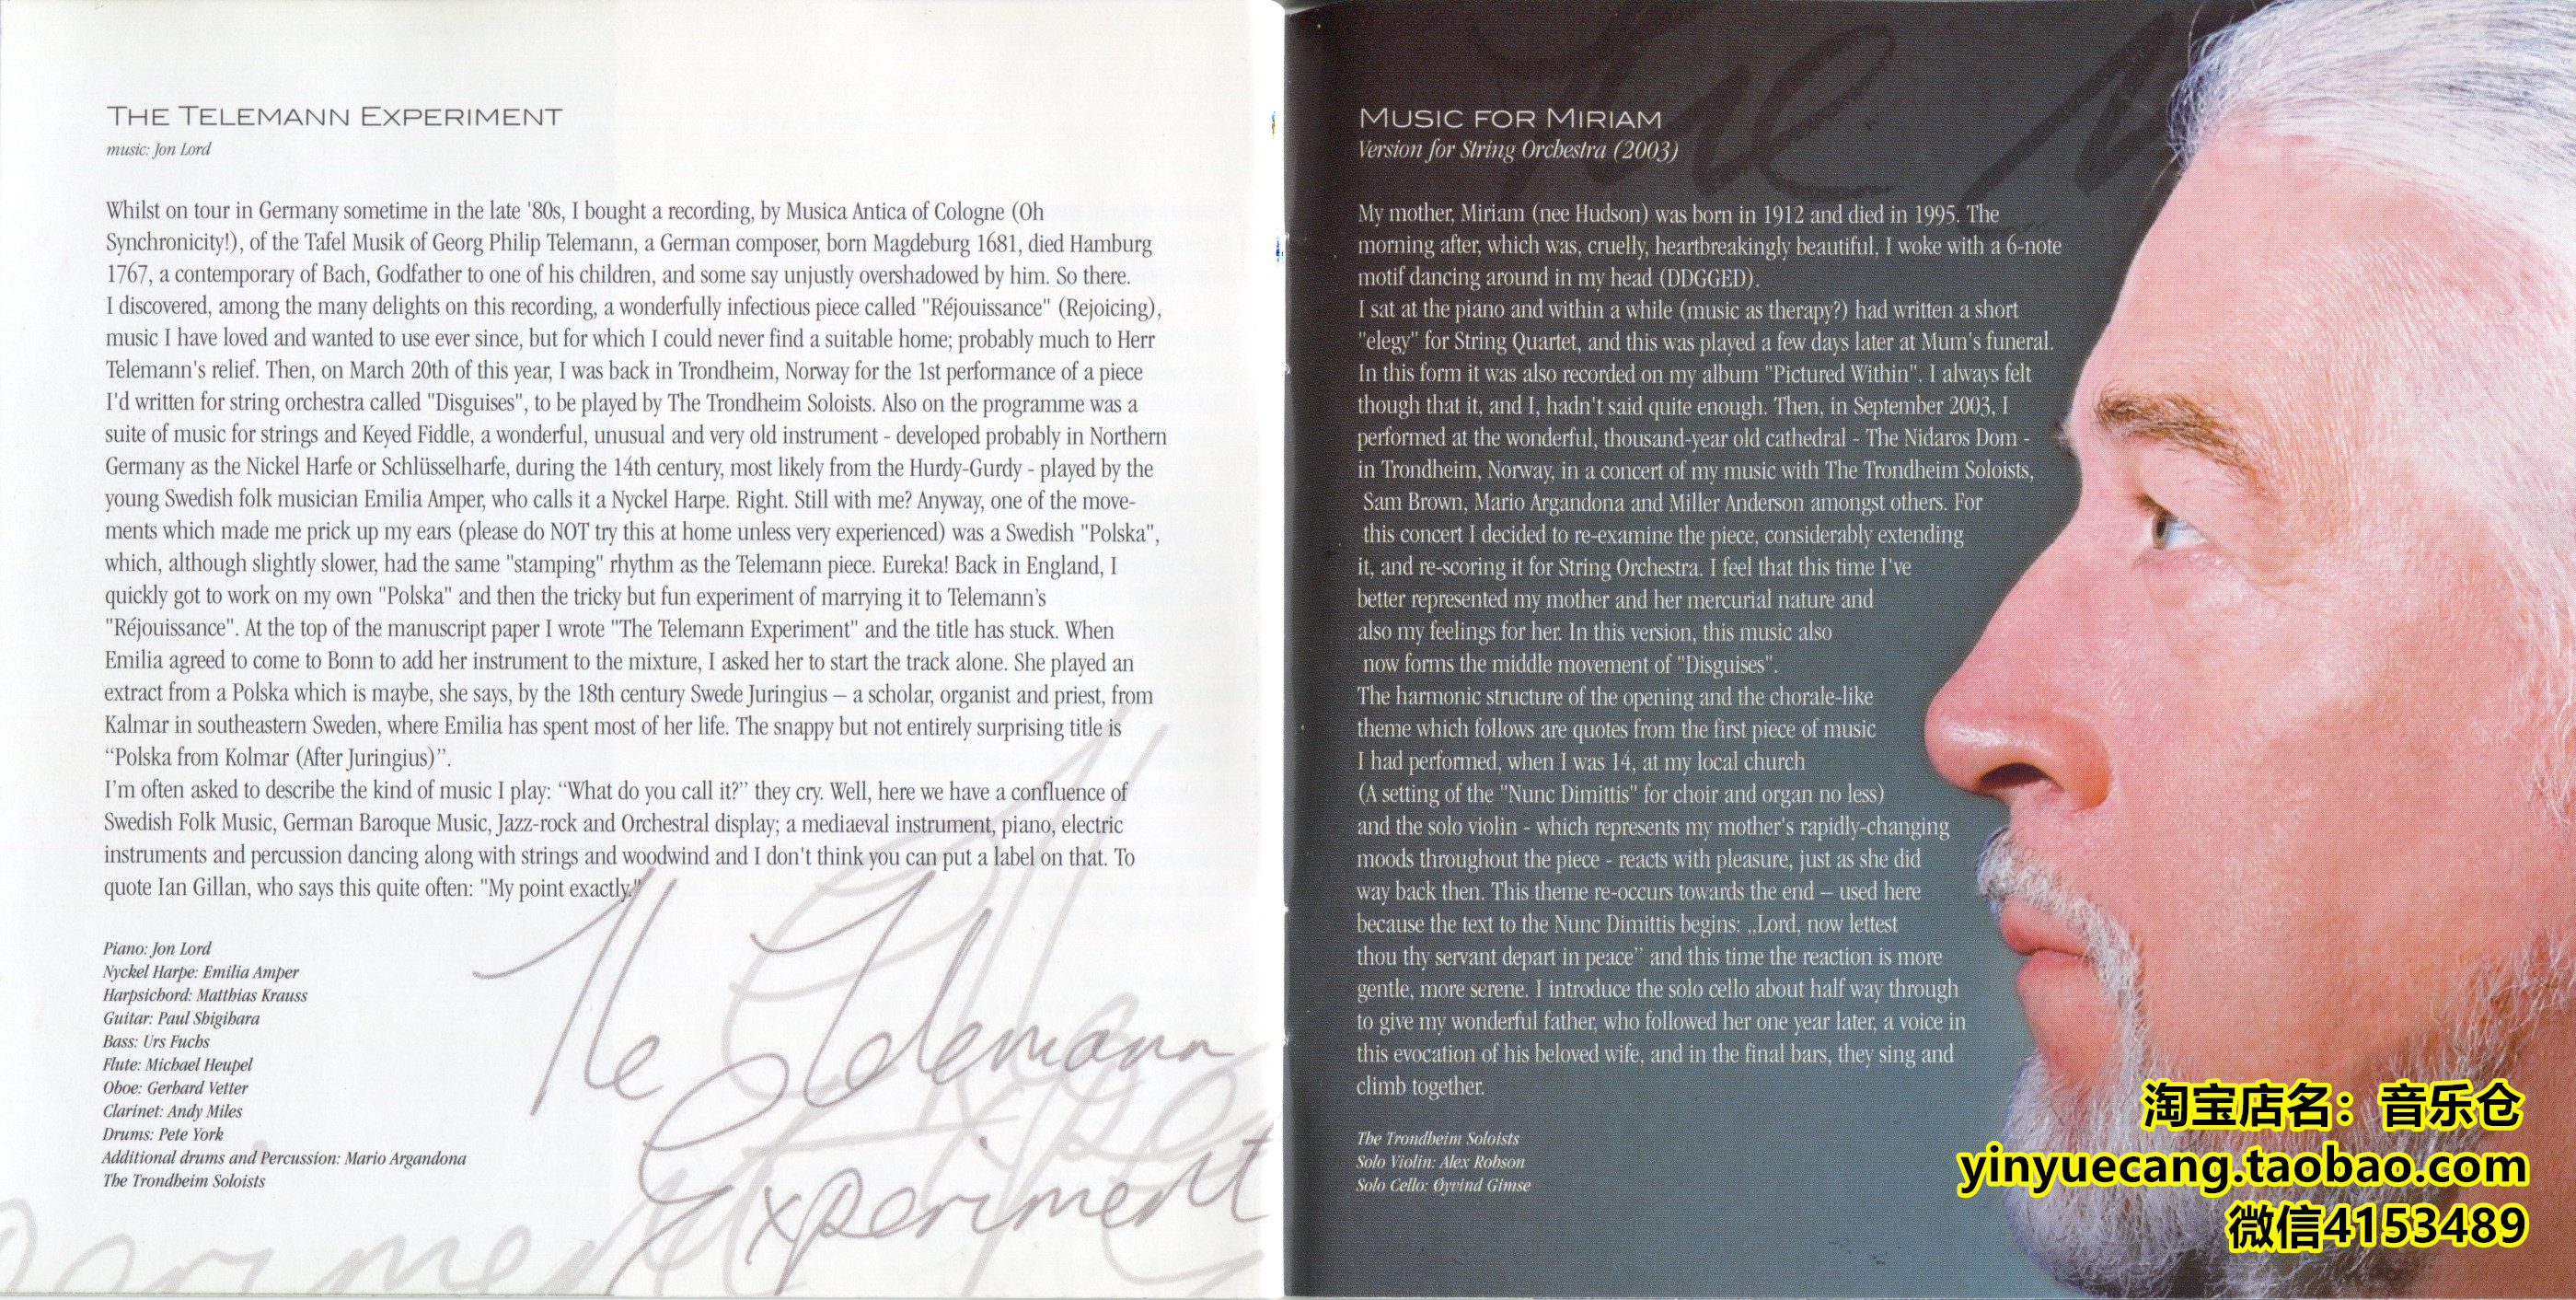 THE TELEMANN EXPERIMENT
music: Jon Lord
Whilst on tour in Germany sometime in the late '80s, I bought a recording, by Musica Antica of Cologne (Oh
Synchronicity!), of the Tafel Musik of Georg Philip Telemann, a German composer, born Magdeburg 1681, died Hamburg
1767, a contemporary of Bach, Godfather to one of his children, and some say unjustly overshadowed by him. So there.
I discovered, among the many delights on this recording, a wonderfully infectious piece called "Réjouissance" (Rejoicing),
music I have loved and wanted to use ever since, but for which I could never find a suitable home; probably much to Herr
Telemann's relief. Then, on March 20th of this year, I was back in Trondheim, Norway for the 1st performance of a piece
I'd written for string orchestra called "Disguises", to be played by The Trondheim Soloists. Also on the programme was a
suite of music for strings and Keyed Fiddle, a wonderful, unusual and very old instrument - developed probably in Northern
Germany as the Nickel Harfe or Schlüsselharfe, during the 14th century, most likely from the Hurdy-Gurdy - played by the
young Swedish folk musician Emilia Amper, who calls it a Nyckel Harpe. Right. Still with me? Anyway, one of the move-
ments which made me prick up my ears (please do NOT try this at home unless very experienced) was a Swedish "Polska",
which, although slightly slower, had the same "stamping" rhythm as the Telemann piece. Eureka! Back in England, I
quickly got to work on my own "Polska" and then the tricky but fun experiment of marrying it to Telemann’s
"Réjouissance". At the top of the manuscript paper I wrote "The Telemann Experiment" and the title has stuck. When
Emilia agreed to come to Bonn to add her instrument to the mixture, I asked her to start the track alone. She played an
extract from a Polska which is maybe, she says, by the 18th century Swede Juringius – a scholar, organist and priest, from
Kalmar in southeastern Sweden, where Emilia has spent most of her life. The snappy but not entirely surprising title is
“Polska from Kolmar (After Juringius)”.
I’m often asked to describe the kind of music I play: “What do you call it?” they cry. Well, here we have a confluence of
Swedish Folk Music, German Baroque Music, Jazz-rock and Orchestral display; a mediaeval instrument, piano, electric
instruments and percussion dancing along with strings and woodwind and I don't think you can put a label on that. To
quote Ian Gillan, who says this quite often: "My point exactly."
Piano: Jon Lord
Nyckel Harpe: Emilia Amper
Harpsichord: Matthias Krauss
Guitar: Paul Shigihara
Bass: Urs Fuchs
Flute: Michael Heupel
Oboe: Gerhard Vetter
Clarinet: Andy Miles
Drums: Pete York
Additional drums and Percussion: Mario Argandona
The Trondheim Soloists
The Telemann
Experiment
MUSIC FOR MIRIAM
Version for String Orchestra (2003)
My mother, Miriam (nee Hudson) was born in 1912 and died in 1995. The
morning after, which was, cruelly, heartbreakingly beautiful, I woke with a 6-note
motif dancing around in my head (DDGGED).
I sat at the piano and within a while (music as therapy?) had written a short
"elegy" for String Quartet, and this was played a few days later at Mum's funeral.
In this form it was also recorded on my album "Pictured Within". I always felt
though that it, and I, hadn't said quite enough. Then, in September 2003, I
performed at the wonderful, thousand-year old cathedral - The Nidaros Dom -
in Trondheim, Norway, in a concert of my music with The Trondheim Soloists,
Sam Brown, Mario Argandona and Miller Anderson amongst others. For
this concert I decided to re-examine the piece, considerably extending
it, and re-scoring it for String Orchestra. I feel that this time I've
better represented my mother and her mercurial nature and
also my feelings for her. In this version, this music also
now forms the middle movement of "Disguises".
The harmonic structure of the opening and the chorale-like
theme which follows are quotes from the first piece of music
I had performed, when I was 14, at my local church
(A setting of the "Nunc Dimittis" for choir and organ no less)
and the solo violin - which represents my mother's rapidly-changing
moods throughout the piece - reacts with pleasure, just as she did
way back then. This theme re-occurs towards the end – used here
because the text to the Nunc Dimittis begins: „Lord, now lettest
thou thy servant depart in peace” and this time the reaction is more
gentle, more serene. I introduce the solo cello about half way through
to give my wonderful father, who followed her one year later, a voice in
this evocation of his beloved wife, and in the final bars, they sing and
climb together.
The Trondheim Soloists
Solo Violin: Alex Robson
Solo Cello: Øyvind Gimse
淘宝店名：音乐仓
yinyuecang.taobao.com
微信4153489